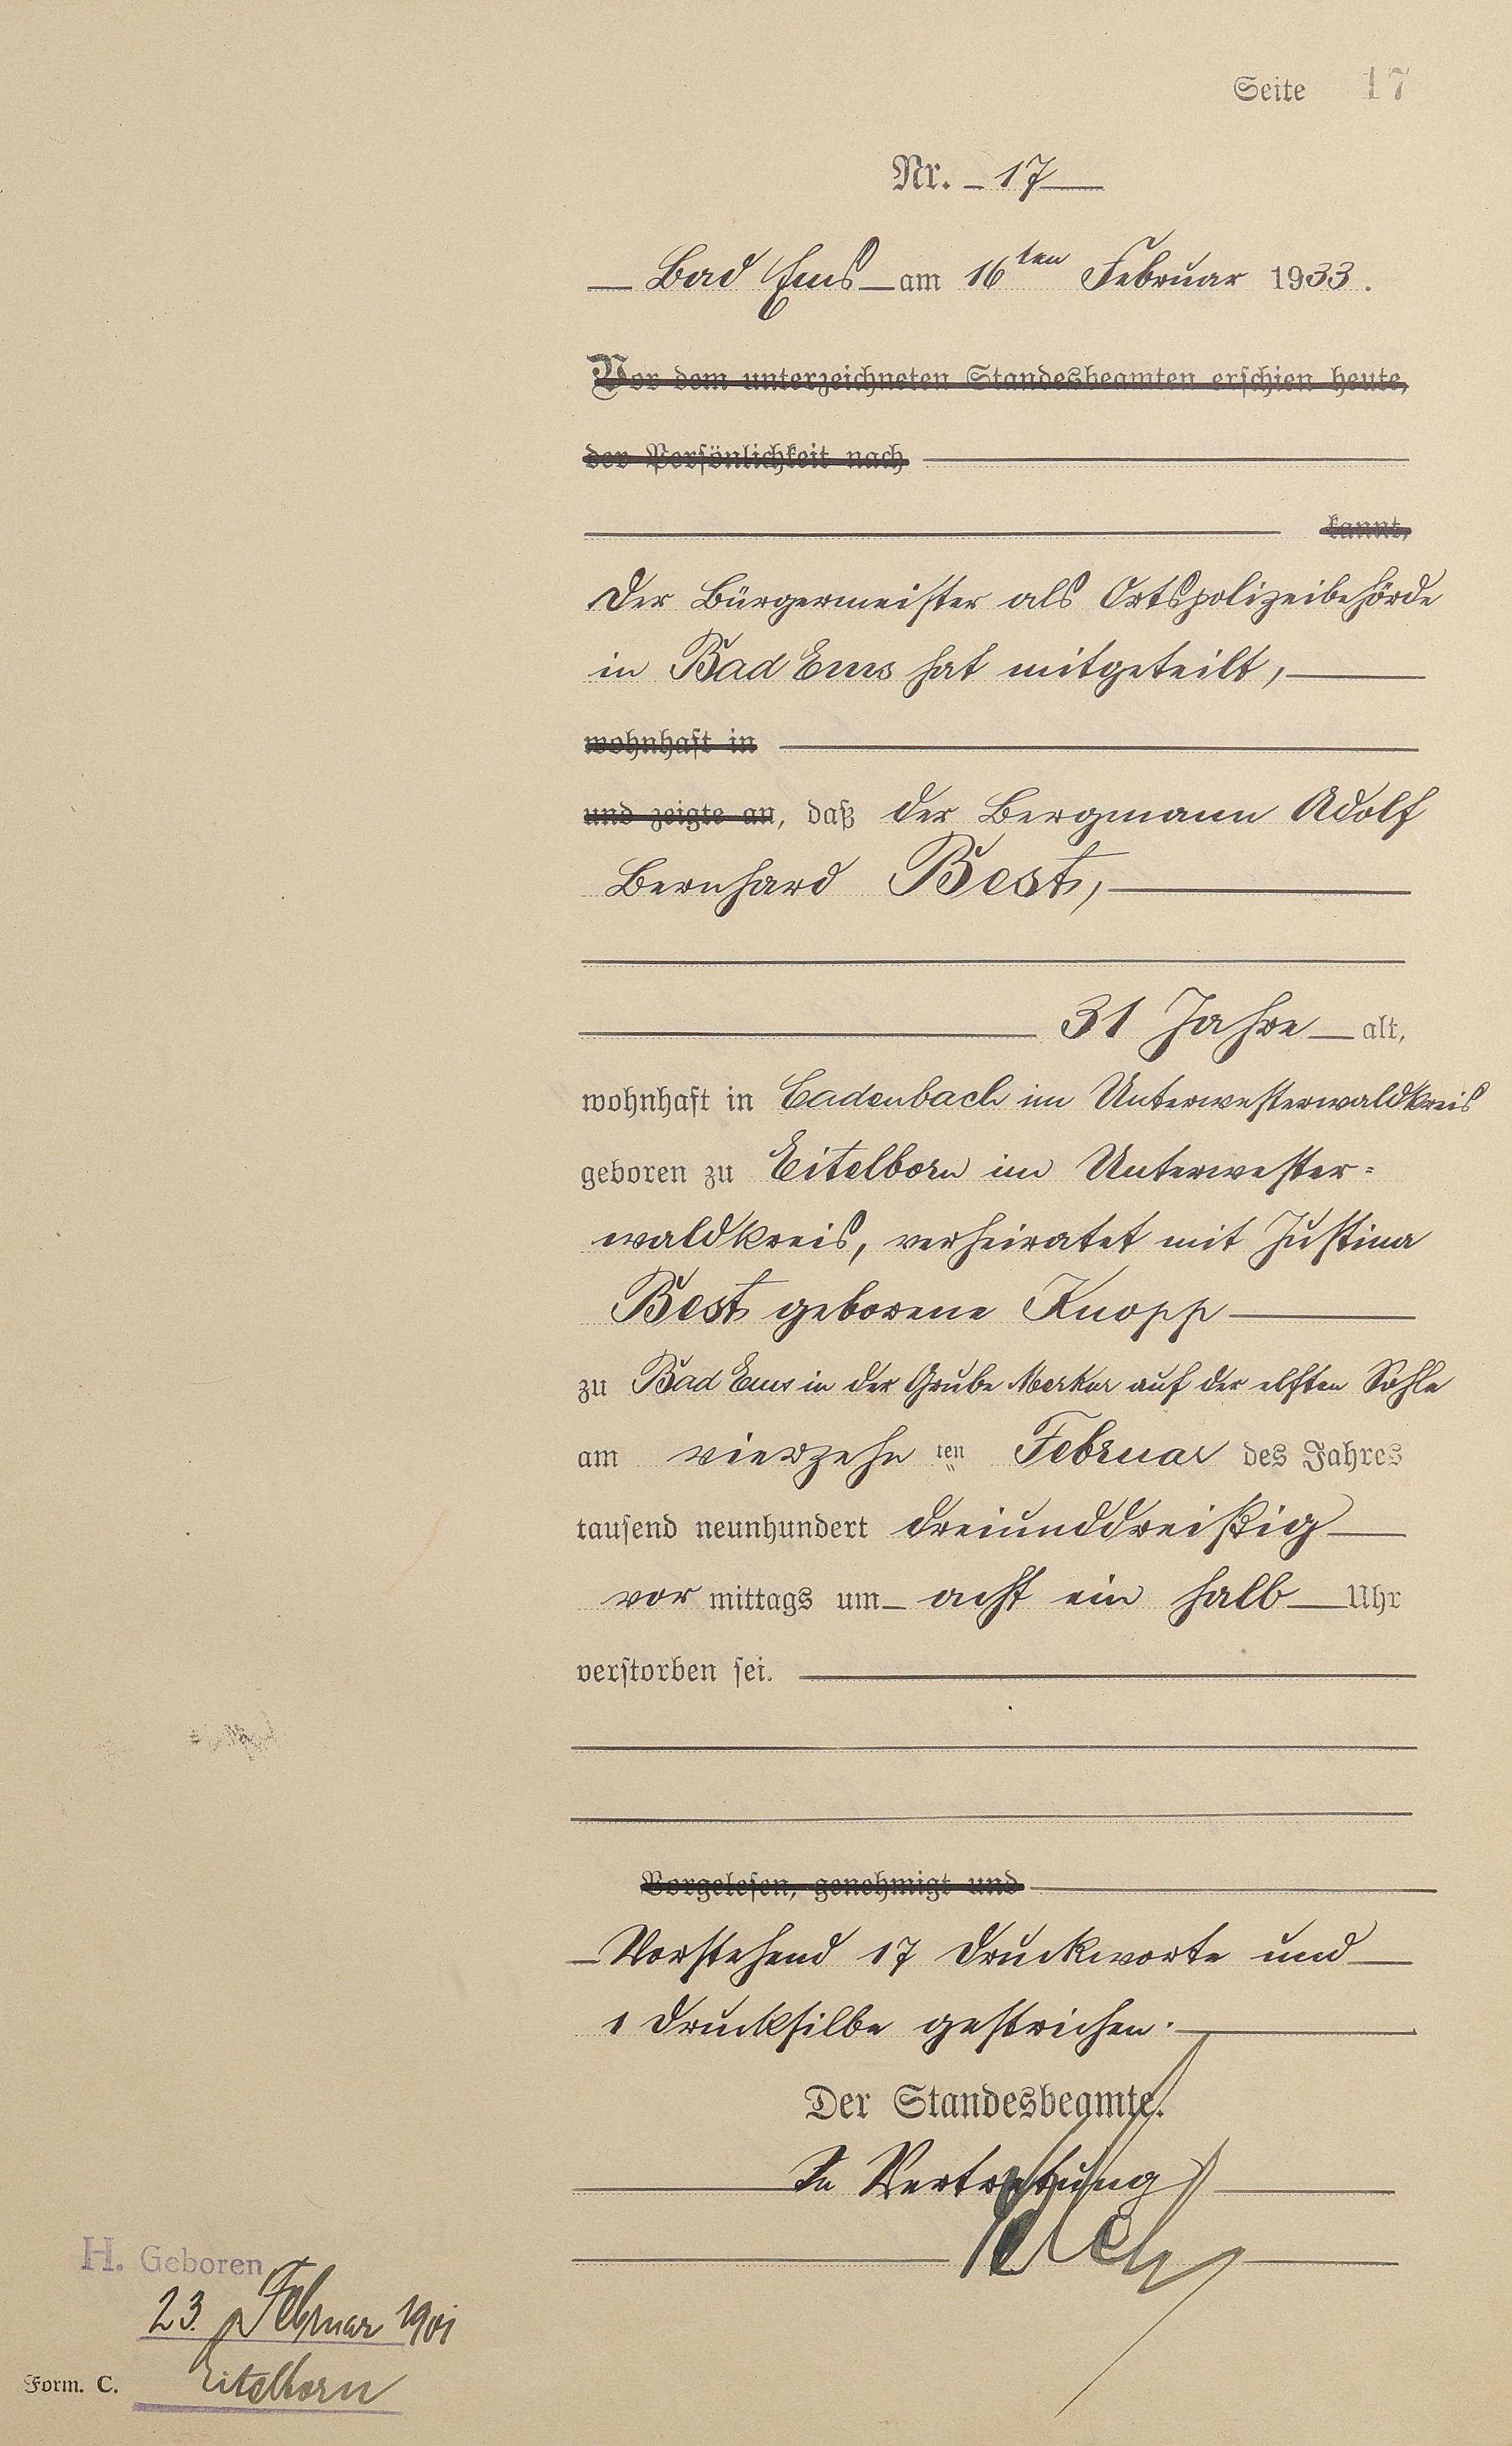 Seite 17
Nr. 17
Bad Ems am 16ten Februar 1933.
Vor dem unterzeichneten Standesbeamten erschien heute,
der Persönlichkeit nach
kannt,
Der Bürgermeister als Ortspolizeibehörde
in Bad Ems hat mitgeteilt,
wohnhaft in
und zeigte an, daß der Bergmann Adolf
Bernhard Best,
31 Jahre alt,
wohnhaft in Cadenbach im Unterwesterwaldkreis
geboren zu Eitelborn im Unterwester=
waldkreis, verheiratet mit Justina
Best geborene Knopp
zu Bad Ems in der Grube Merkur auf der elften Sohle
am vierzehn ten Februar des Jahres
tausend neunhundert dreiunddreißig
vor mittags um acht ein halb Uhr
verstorben sei.
Vorgelesen, genehmigt und
Vorstehend 17 Druckworte und
1 Drucksilbe gestrichen.
Der Standesbeamte.
In Vertretung
H. Geboren
23. Februar 1901
Eitelborn
Form. C.